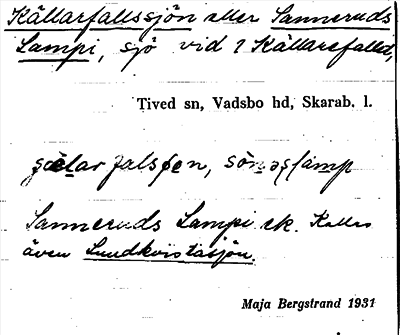 Källarfallssjön eller Sanneruds
Lampi, sjö vid ? Källarefallet,
Tived sn, Vadsbo hd, Skarab. l.
Sanneruds Lampi ek. Kallas
även Lundkvistasjön.
Maja Bergstrand 1931